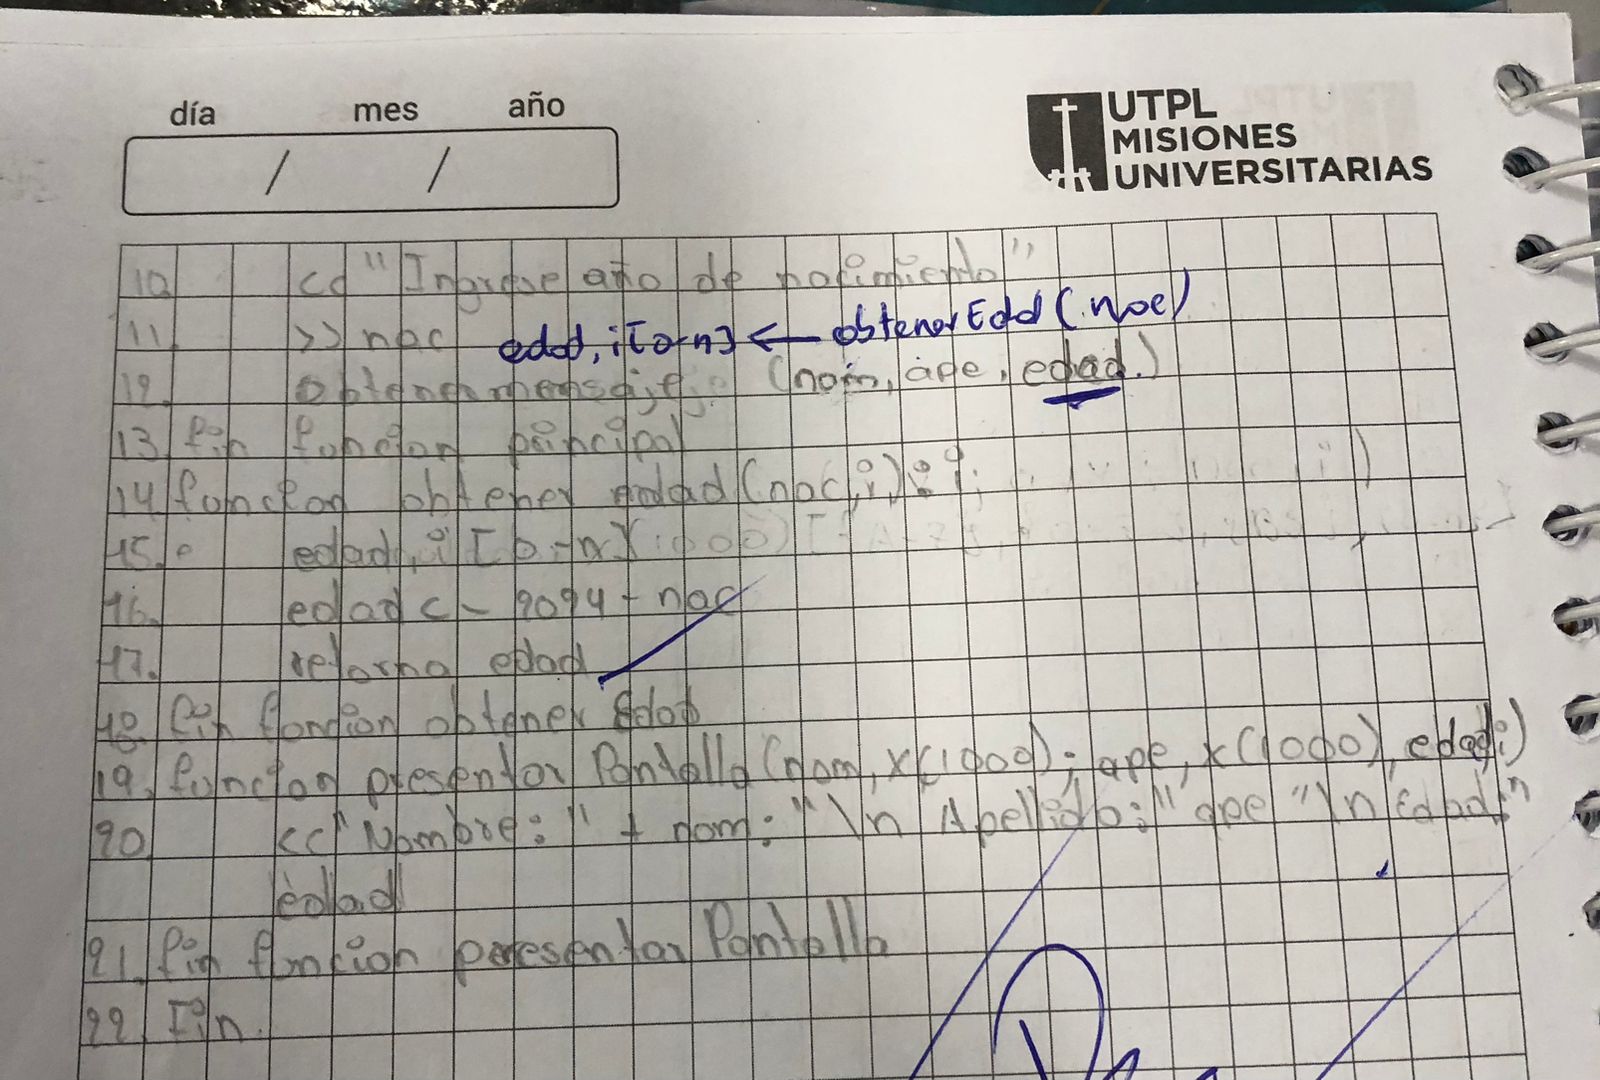 día mes año
/ /
UTPL
MISIONES
UNIVERSITARIAS
10. << "Ingrese año de nacimiento"
11. >> nac edad, i[0-n] <— obtenerEdd (nac)
12. obtener mensaje (nom, ape, edad.)
13. fin funcion principal
14. funcion obtener edad (nac, i) : i
15. edad, i [0-n]
16. edad <- 2024 - nac
17. retorna edad
18. fin funcion obtener Edad
19. funcion presentar Pantalla (nom, x(1000); ape, x(1000), edad i)
20 << "Nombre: " + nom; "\n Apellido:" ape "\n Edad:"
edad
21. fin funcion presentar Pantalla
22. Fin.